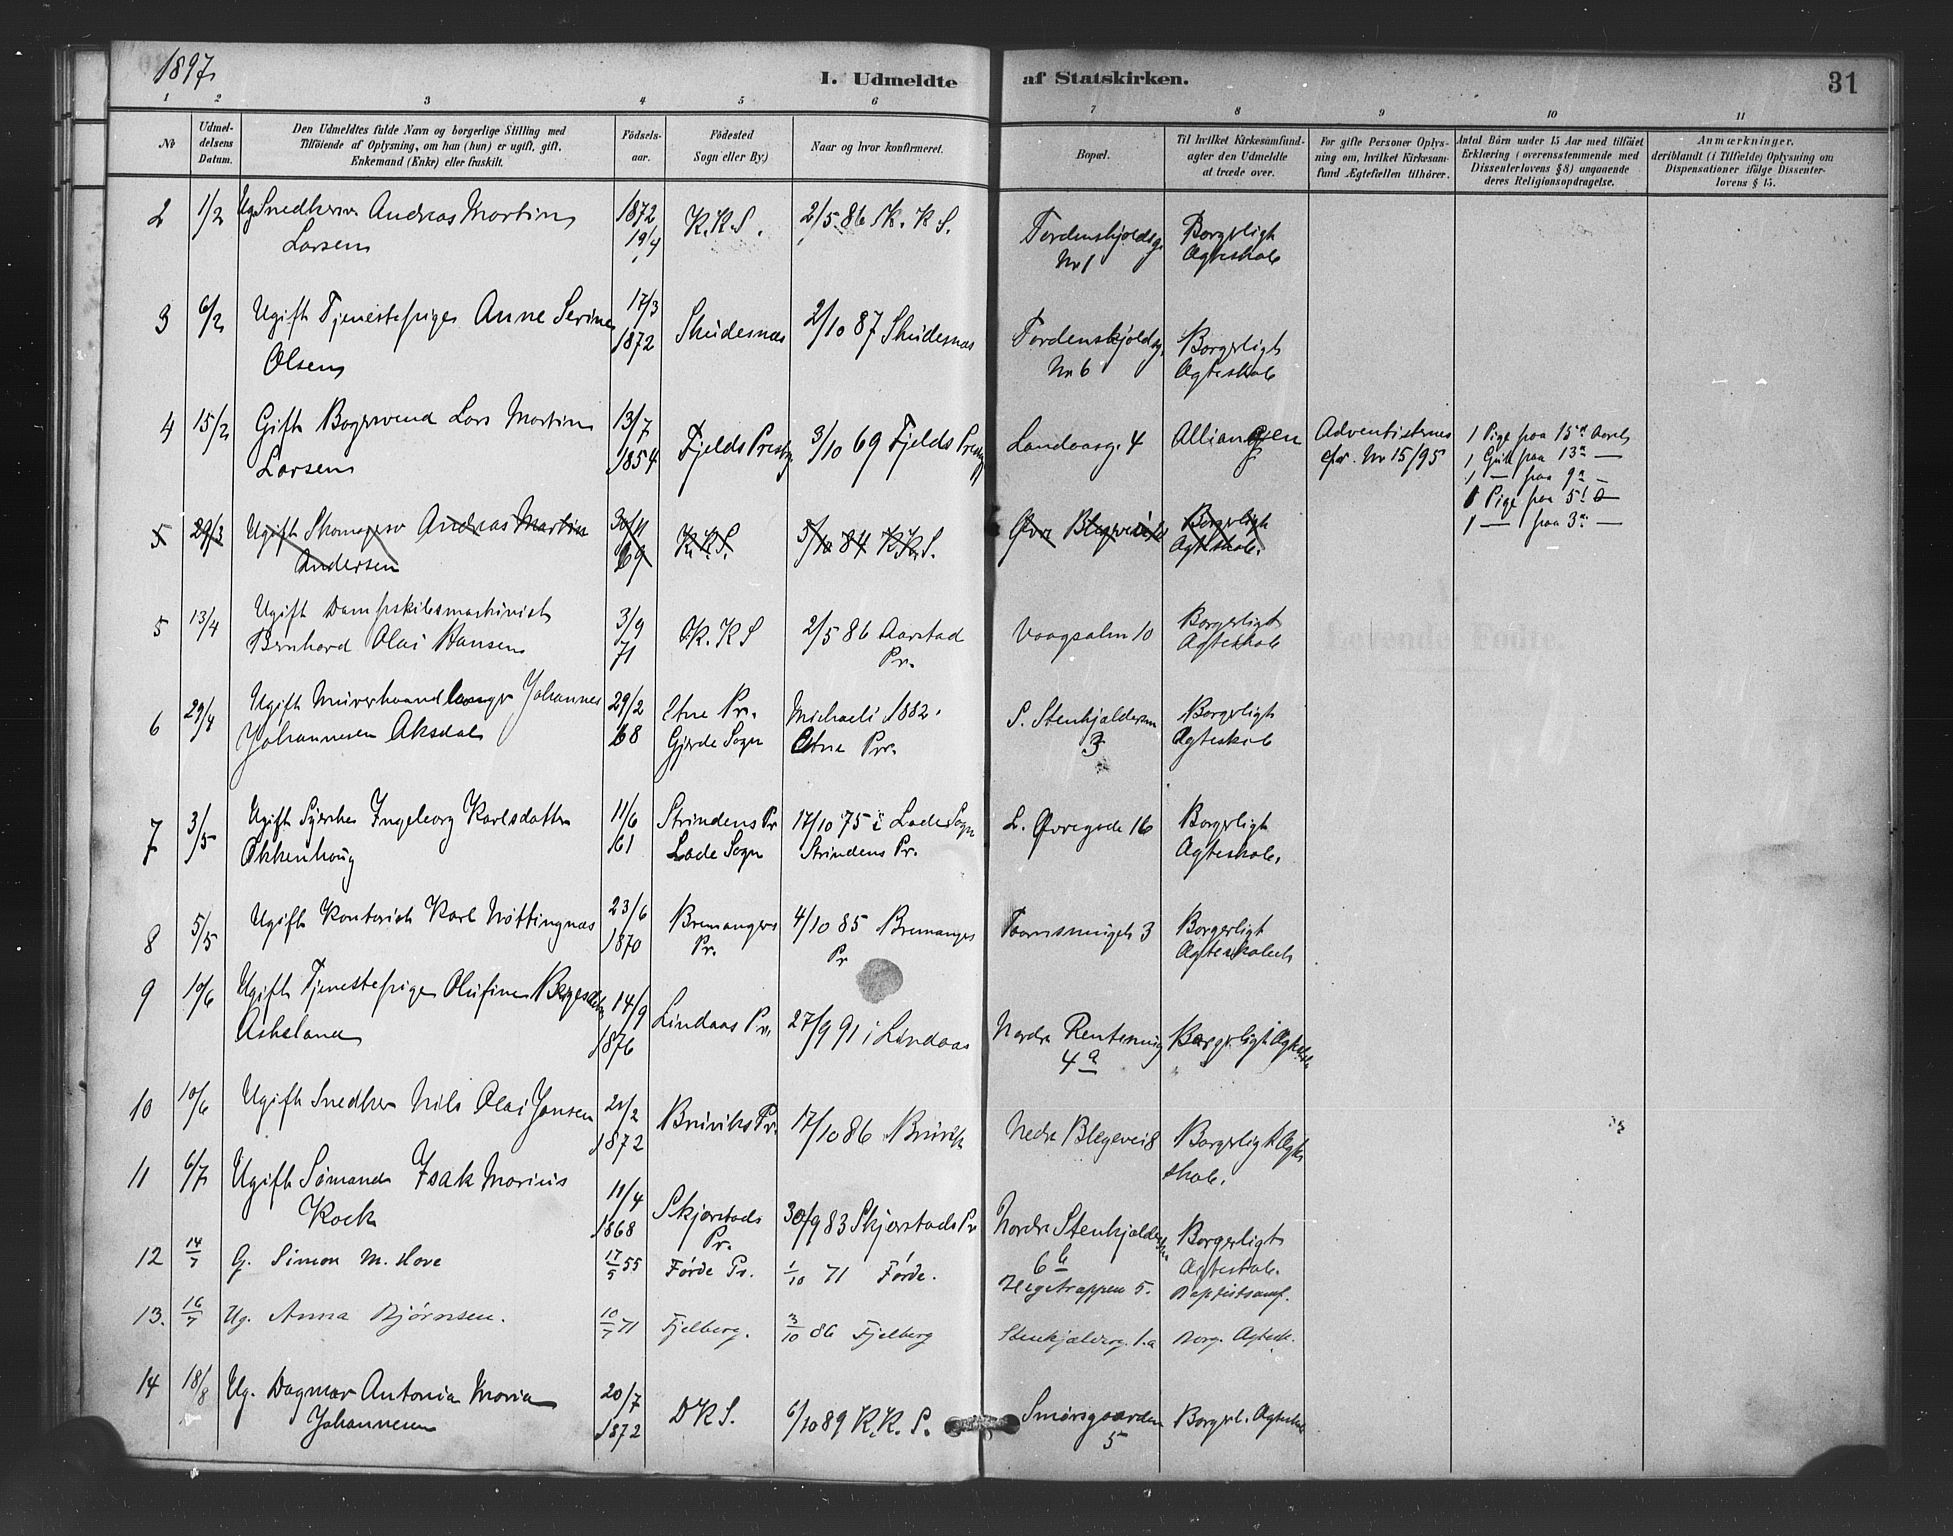 1897
I. Udmeldte af Statskirken.
31
1 2 3 4 5 6 7 8 9 10 11
No
Udmeldelsens Datum.
Den Udmeldtes fulde Navn og borgerlige Stilling med
Tilføiende af Oplysning, om han (hun) er ugift, gift,
Enkemand (Enke) eller fraskilt.
Fødselsaar.
Fødested
Sogn eller By.)
Naar og hvor konfirmeret.
Bopæl.
Til hvilket Kirkesamfund-
agter den Udmeldte
at træde over.
For gifte Personer Oplys-
ning om, hvilket Kirkesam-
fund Ægtefællen tilhører.
Antal Børn under 15 Aar med tilføiet
Erklæring (overensstemmende med
Dissenterlovens § 8) angaaende
deres Religionsopdragelse.
Anmærkninger,
deriblandt (i Tilfælde) Oplysning om
Dispensationer ifølge Dissenter-
lovens § 15.
2 1/2 Ug. Snedkersv Andreas Martin 1872 K.K.S. 2/5 86 K.K.S. Tordenskjoldsg. Borgerligt
Larsen 19/4 No 1 Ægteskab
3 6/2 Ugift Tjenestepige Anne Serine 17/3 Skudesnæs 2/10 87 Skudesnæs Tordenskjoldsg. Borgerligt
Olsen 1872 No 6 Ægteskab
4 15/2 Gift Bagersvend Lars Martin 13/7 Fjelds Prestg 3/10 69 Fjelds Prestg Landaasg. 4 Alliancen Adventisterne 1 Pige paa 15 Aar
Larsen 1854 cfr. No 15/95 1 Gut paa 13 —
1 — paa 9 —
1 Pige paa 5 —
1 — paa 3 —
5 29/3 Ugift Skomagersv Andreas Martin 30/11 K.K.S. 5/10 84 K.K.S. Øvre Blegevei Borgerligt
Andersen 69 Ægteskab.
5 13/4 Ugift Dampskibsmaskinist 3/9 K.K.S 2/5 86 Aarstad Vaagsalm 10 Borgerligt
Bernhard Olai Hansen 71 Pr. Ægteskab
6 29/4 Ugift Murerhaandlanger Johannes 29/2 Etne Pr. Michaeli 1882. S. Stenkjelderen Borgerligt
Johannesen Aksdal 68 Gjerde Sogn Etne Pr. 3 Ægteskab
7 3/5 Ugift Syerske Ingeborg Karlsdatter 11/6 Strindens Pr 17/10 75 i Lade Sogn L. Øvregade 16 Borgerligt
Okkenhoug 61 Lade Sogn Strindens Pr. Ægteskab.
8 5/5 Ugift Kontorist Karl Nøttingnæs 23/6 Bremangers 4/10 85 Bremanger 3 Borgerligt
1870 Pr. Pr Ægteskab
9 10/6 Ugift Tjenestepige Olufine 14/9 Lindaas Pr. 27/9 91 i Lindaas Nordre Borgerligt Ægteskab
Askeland 1876 4 a
10 10/6 Ugift Snedker Nils Olai Jansen 20/2 Bruviks Pr. 17/10 86 Bruvik Nedre Blegevei 8 Borgerligt Ægte
1872 skab.
11 6/7 Ugift Sømand Isak Marius 11/4 Skjerstads 30/9 83 Skjerstads Pr Nordre Stenkjelder Borgerligt
Kock 1868 Pr. 6 b Ægteskab.
12 14/7 G. Simon M. Hove 17/5 55 Førde Pr. 1/10 71 Førde. 5. Baptistsamf.
13. 16/7 Ug. Anna Bjørnsen. 10/7 71 Fjelberg. 3/10 86 Fjelberg Stenkjelderg. 1.a Borg. Ægtesk.
14 18/8 Ug. Dagmar Antonia Maria 20/7 DKS. 6/10 89 K.K.S. Smørsgaarden Borgerl. Ægteskab
Johannesen 1872 5